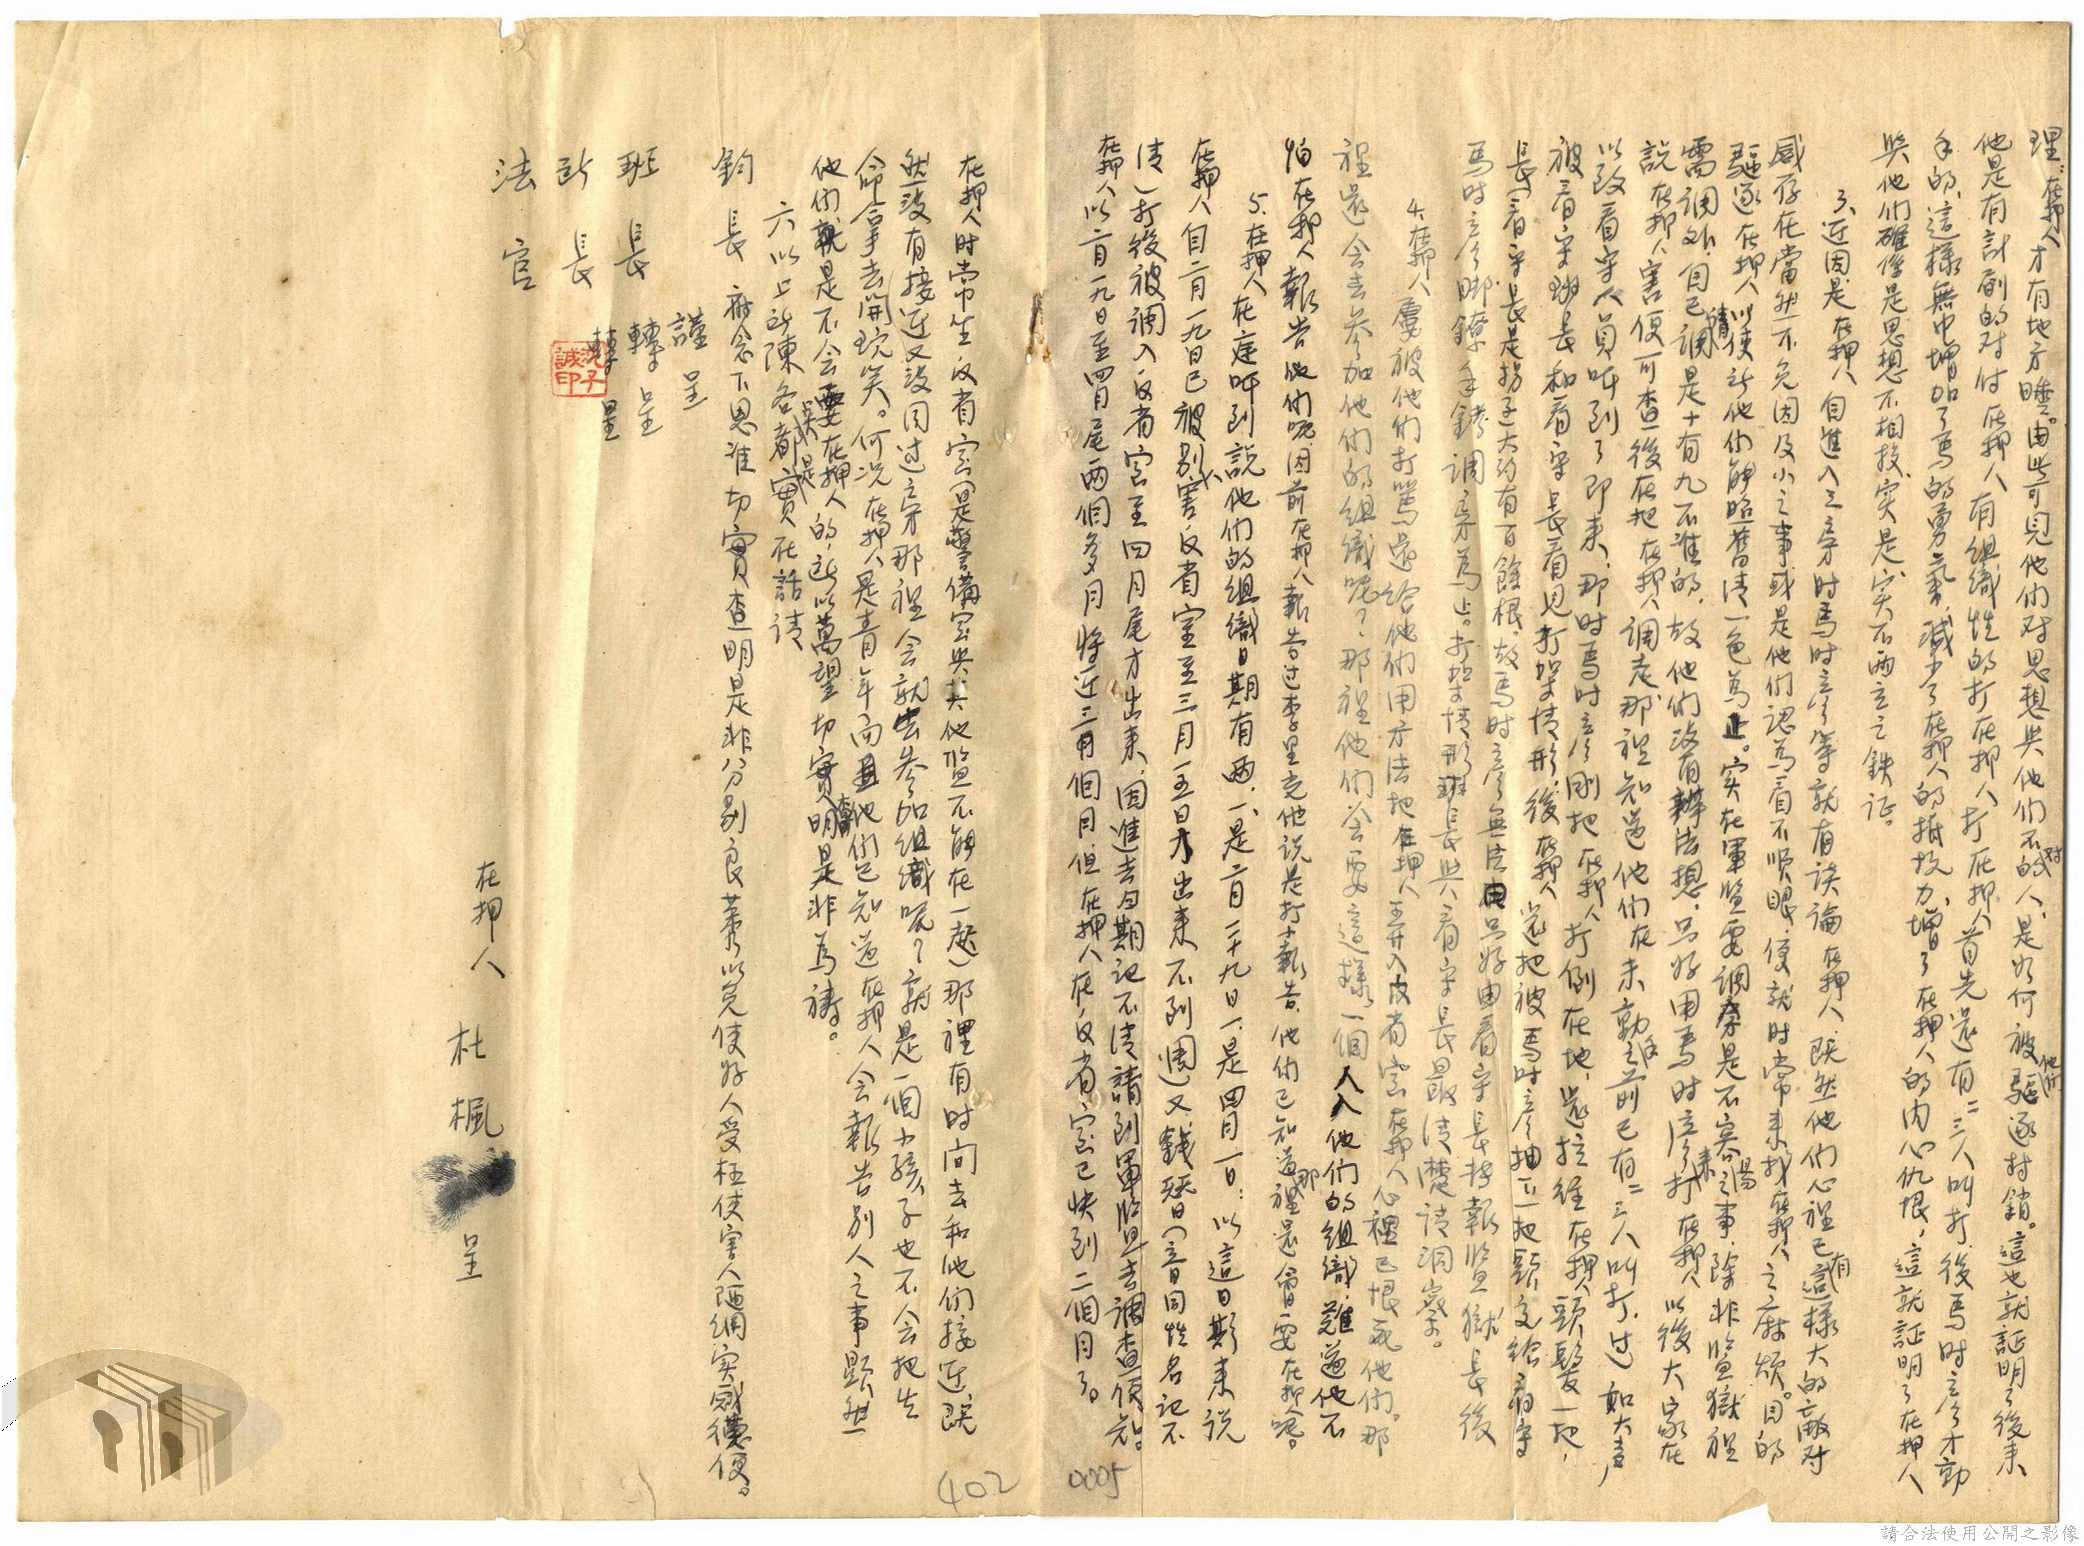 理。在押人才有地方睡。由此可見他們对思想與他們不对的人，是如何被他們驅逐村銷。這也就証明了後來
他是有計劃的对付在押人有組織性的打在押人打在押人首先還有二三人叫打，後馬时彥才動
手的，這樣無中增加了馬的勇氣，減少了在押人的抵抗力，增了在押人的內心仇恨，這就証明了在押人
與他們確係是思想不相投，实是，实不兩立之鉄証。
3、近因是在押人自進入三房时馬时彥等就有谈論在押人，既然他們心裡已有這樣大的敵对
感存在當然不免因及小之事或是他們認為看不順眼，便就时常来找在押人之麻煩。目的
驅逐在押人以使所他們能照舊清一色為止。实在軍监要調房是不容易之事，除非监獄裡
需調外，自己請調是十有九不准的，故他們沒有辦法想，只好用馬时彥来打在押人以後大家在
說在押人害便可查後在把在押人調走那裡知道他們在未動手之前已有二三人叫打，过如大声
以致看守人員听到了即来，那时馬时彥剛把在押人打倒在地，還拉往在押人頭髮一把，
被看守班長和看守長看見打架情形，後在押人還把被馬时彥抽下一把頭髮交給看守
長（看守長是拐子大約有百餘根。故馬时彥無法由只好由看守長特報监獄長後
馬时彥脚鐐手銬調房為止。打架情形班長與看守長最清楚請洞察。
4、在押人屢被他們打罵還給他們用方法把在押人弄入反省室在押人心裡已恨死他們。那
裡還会去參加他們的組織呢？那裡他們会要這樣一個人入他們的組織，難道他不
怕在押人報告他們呢，因前在押人報告过李里克他說是打小報告，他們已知道那裡還會要在押人呢。
5、在押人在庭听到說他們的組織日期有兩，一、是二月二十九日一、是四月一日：以這日期来说
在押人自二月一九日已被別人害反省室至三月一五日才出来不到週又錢班日（音同性名記不
清）打後被調入反省室至四月尾才出来，因進去日期記不清請到軍监去調查便知。
在押人以二月一九日至四月尾兩個多月将近三個月但在押人在反省室已快到二個月了。
在押人时常坐反省室（是警備室與其他监不能在一起）那裡有时间去和他們接近，既
然沒有接近又沒同过房那裡会就去參加組織呢？就是一個小孩子也不会把生
命拿去開玩笑。何况在押人是青年而且他們已知道在押人会報告別人之事題然
他們就是不会要在押人的，所以萬望切實查明是非為禱。
六以上所陳各都是實在話請
鈞長 府念下恩准切實查明是非分别良莠以免使好人受枉使害人陋網实感德便。
謹呈
班長 轉呈
所長 轉呈
法官
在押人 杜楓 呈
沈子誠印
402
0005
請合法使用公開之影像